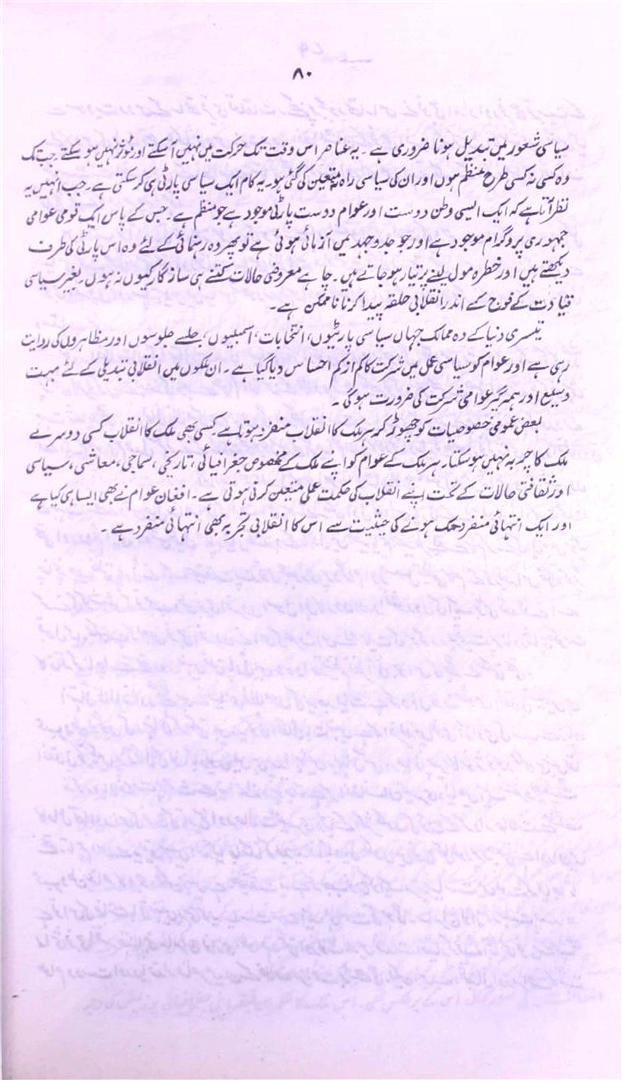 ۸۰
سیاسی شعور میں تبدیل ہونا ضروری ہے ۔ یہ عناصر اس وقت تک حرکت میں نہیں آسکتے اور مؤثر نہیں ہو سکتے جب تک
وہ کسی نہ کسی طرح منظم ہوں اور ان کی سیاسی راہ متعین کی گئی ہو ۔ یہ کام ایک سیاسی پارٹی ہی کر سکتی ہے ۔ جب انہیں یہ
نظر آتا ہے کہ ایک ایسی وطن دوست اور عوام دوست پارٹی موجود ہے جو منظم ہے ۔ جس کے پاس ایک قومی عوامی
جمہوری پروگرام موجود ہے اور جو جدوجہد میں آزمائی ہوئی ہے تو پھر وہ رہنمائی کے لئے وہ اس پارٹی کی طرف
دیکھتے ہیں اور خطرہ مول لینے پر تیار ہو جاتے ہیں ۔ چاہے معروضی حالات کتنے ہی سازگار کیوں نہ ہوں ، بغیر سیاسی
قیادت کے فوج کے اندر انقلابی حلقہ پیدا کرنا ناممکن ہے ۔
تیسری دنیا کے وہ ممالک جہاں سیاسی پارٹیوں ، انتخابات ، اسمبلیوں ، جلسے جلوسوں اور مظاہروں کی روایت
رہی ہے اور عوام کو سیاسی عمل میں شرکت کا کم از کم احساس دیا گیا ہے ۔ ان ملکوں میں انقلابی تبدیلی کے لئے بہت
وسیع اور ہمہ گیر عوامی شرکت کی ضرورت ہوگی ۔
بعض عمومی خصوصیات کو چھوڑ کر ہر ملک کا انقلاب منفرد ہوتا ہے کسی بھی ملک کا انقلاب کسی دوسرے
ملک کا چربہ نہیں ہو سکتا ۔ ہر ملک کے عوام کو اپنے ملک کے مخصوص جغرافیائی ، تاریخی ، سماجی ، معاشی ، سیاسی
اور ثقافتی حالات کے تحت اپنے انقلاب کی حکمت عملی متعین کرنی ہوتی ہے ۔ افغان عوام نے بھی ایسا ہی کیا ہے
اور ایک انتہائی منفرد ملک ہونے کی حیثیت سے اس کا انقلابی تجربہ بھی انتہائی منفرد ہے ۔